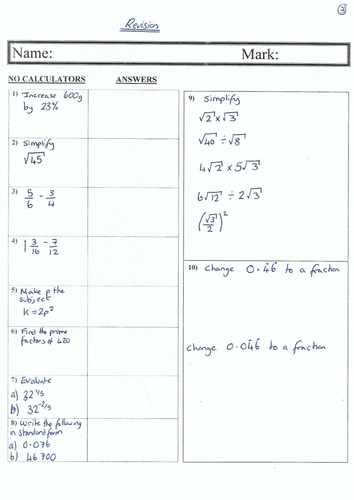 ③
Revision
Name: Mark:
NO CALCULATORS ANSWERS
1) Increase 600g
by 23%
2) Simplify
√45
3) 5/6 - 3/4
4) 1 3/16 - 7/12
5) Make p the
subject
k = 2p²
6) Find the prime
factors of 420
7) Evaluate
a) 32^1/5
b) 32^-2/5
8) Write the following
in standard form
a) 0.076
b) 46 700
9) Simplify
√2 x √3
√40 ÷ √8
4√2 x 5√3
6√12 ÷ 2√3
(√3/2)²
10) Change 0.4̇6̇ to a fraction
Change 0.04̇6̇ to a fraction